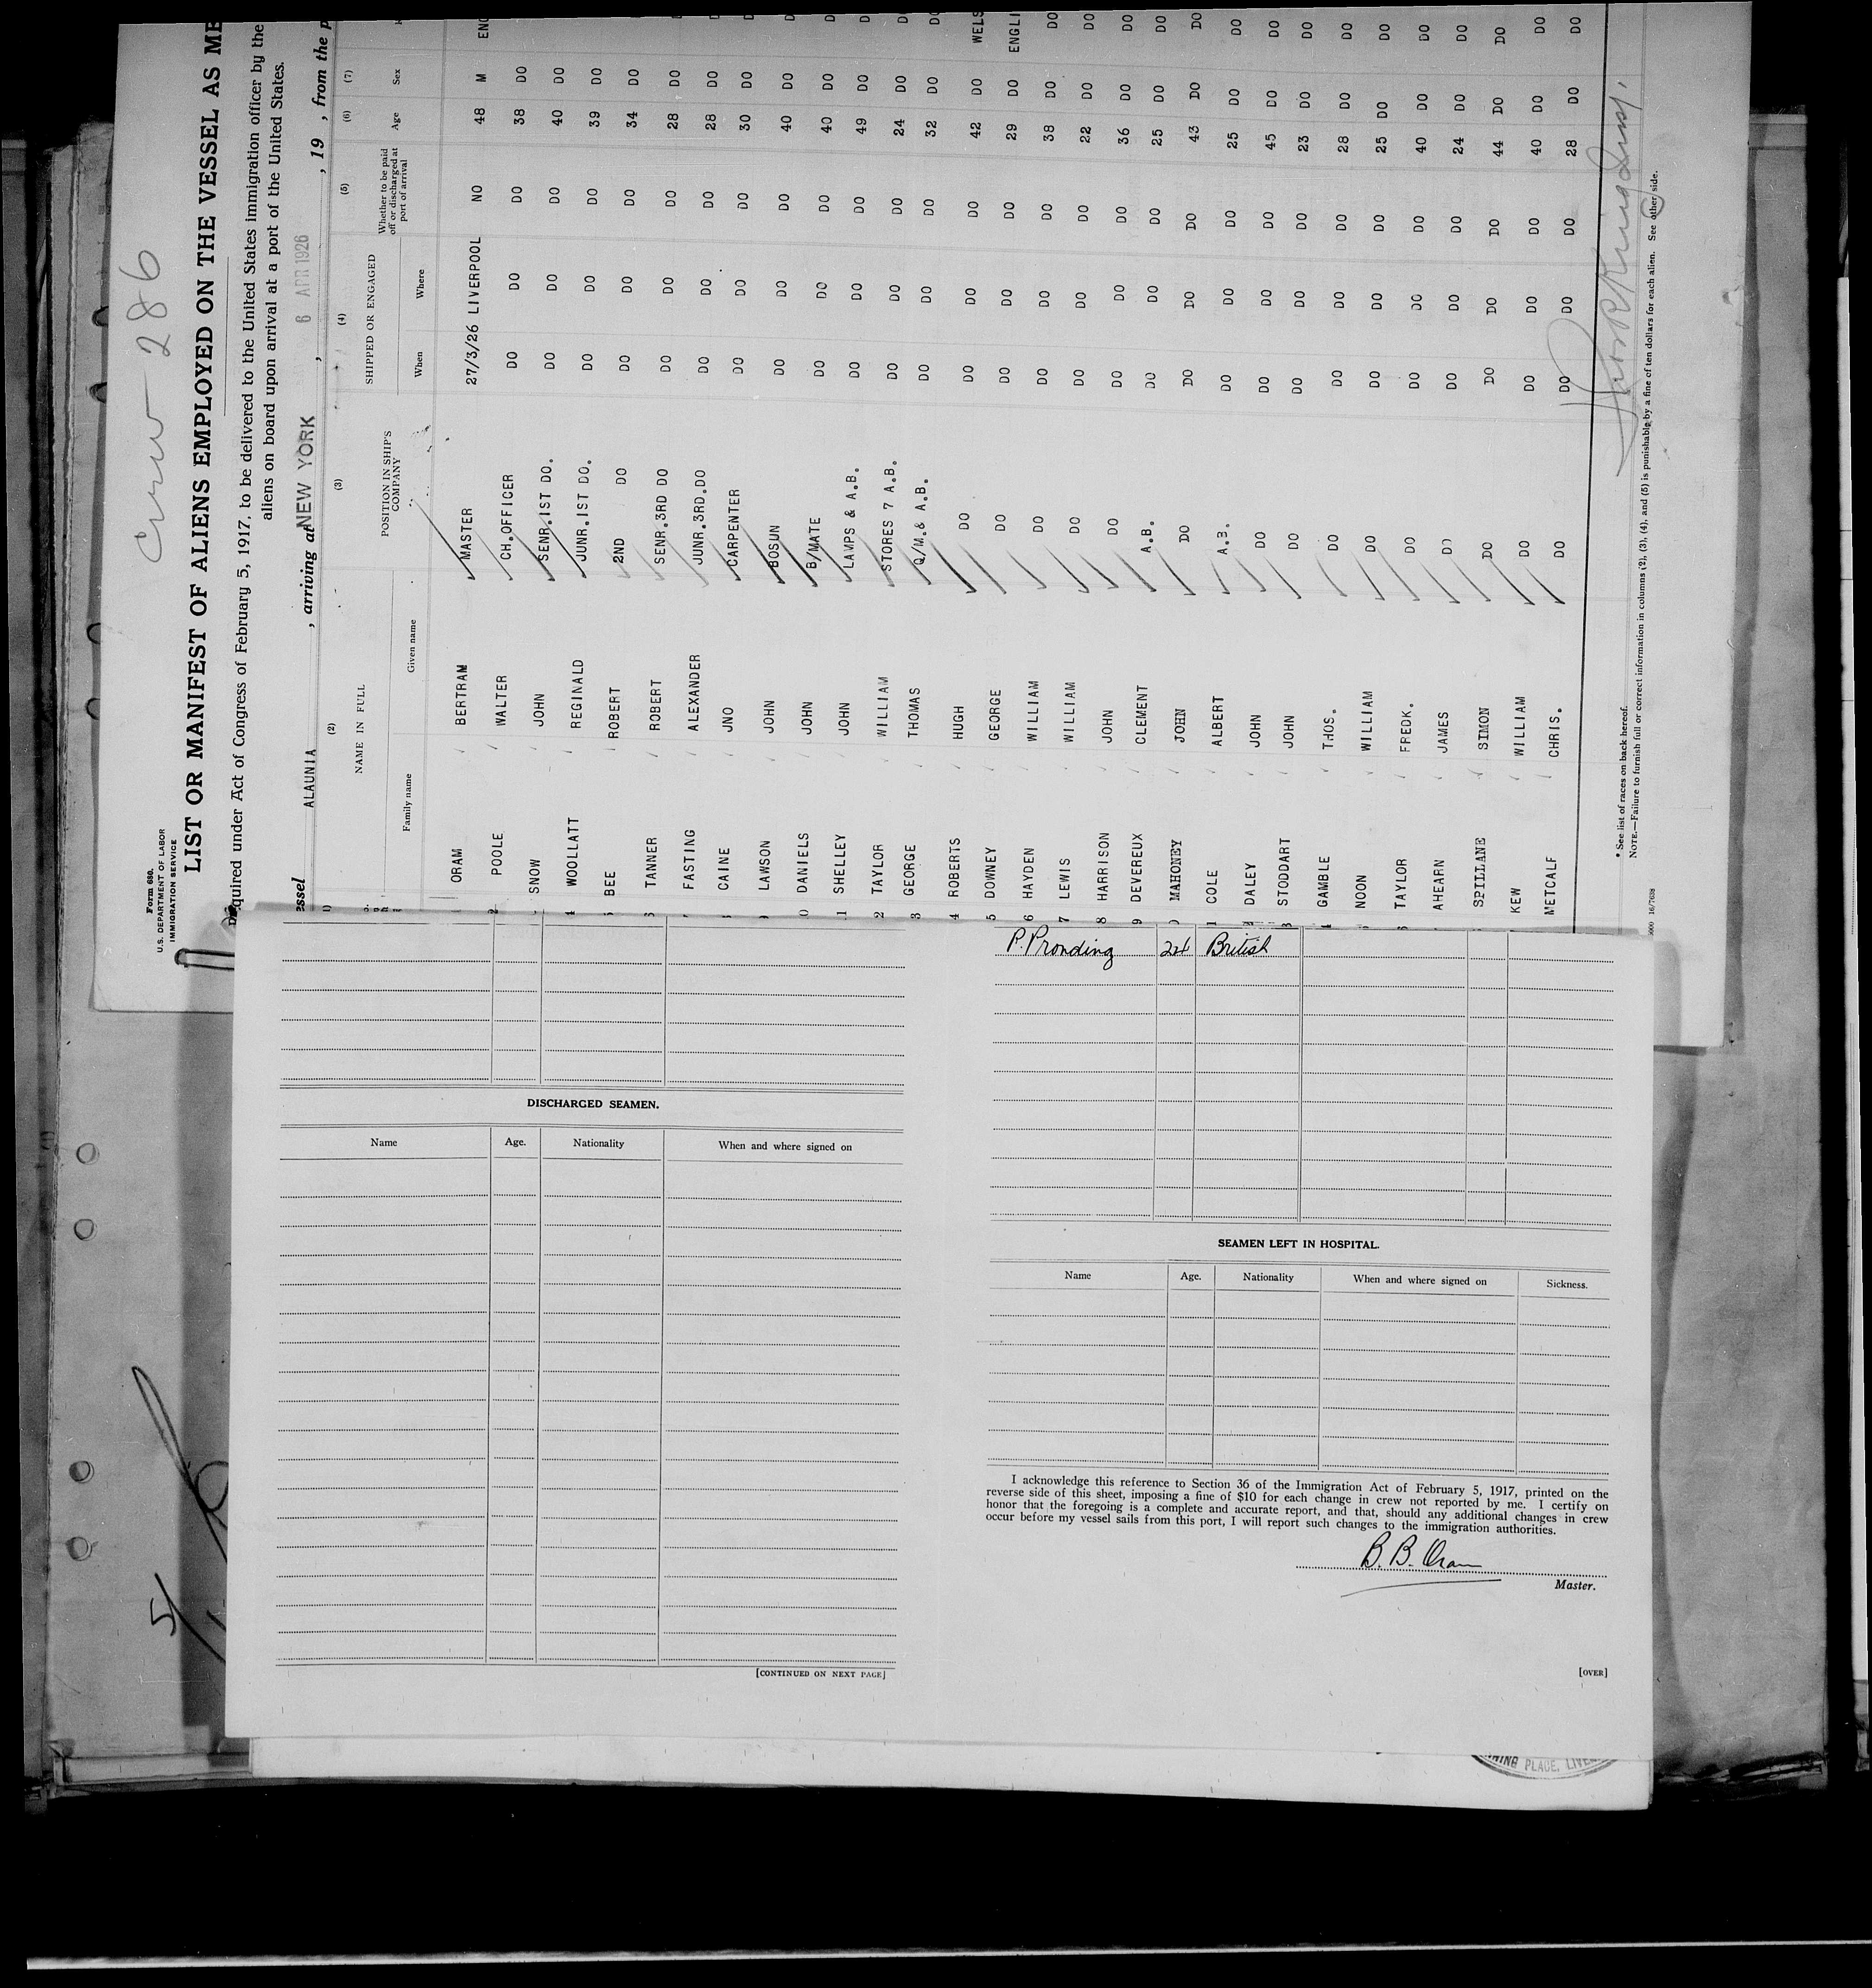 Crew 286
Form 680.
U.S. DEPARTMENT OF LABOR
IMMIGRATION SERVICE
LIST OR MANIFEST OF ALIENS EMPLOYED ON THE VESSEL AS ME
quired under Act of Congress of February 5, 1917, to be delivered to the United States immigration officer by the
aliens on board upon arrival at a port of the United States.
essel ALAUNIA , arriving at NEW YORK , 6 APR 1926 , 19 , from the p
(2) (3) (4) (5) (6) (7)
NAME IN FULL POSITION IN SHIP'S COMPANY SHIPPED OR ENGAGED Whether to be paid off or discharged at port of arrival Age Sex
Family name Given name When Where
ORAM BERTRAM MASTER 27/3/26 LIVERPOOL NO 48 M ENG
2 POOLE WALTER CH.OFFICER DO DO DO 38 DO D
SNOW JOHN SENR.1ST DO. DO DO DO 40 DO D
4 WOOLLATT REGINALD JUNR.1ST DO. DO DO DO 39 DO D
5 BEE ROBERT 2ND DO DO DO DO 34 DO D
6 TANNER ROBERT SENR.3RD DO DO DO DO 28 DO D
7 FASTING ALEXANDER JUNR.3RD.DO DO DO DO 28 DO D
CAINE JNO CARPENTER DO DO DO 30 DO D
9 LAWSON JOHN BOSUN DO DO DO 40 DO D
0 DANIELS JOHN B/MATE DO DO DO 40 DO D
1 SHELLEY JOHN LAMPS & A.B. DO DO DO 49 DO D
2 TAYLOR WILLIAM STORES 7 A.B. DO DO DO 24 DO D
3 GEORGE THOMAS Q/M.& A.B. DO DO DO 32 DO DO
4 ROBERTS HUGH DO DO DO DO 42 DO WELS
5 DOWNEY GEORGE DO DO DO DO 29 DO ENGLI
6 HAYDEN WILLIAM DO DO DO DO 38 DO DO
7 LEWIS WILLIAM DO DO DO DO 22 DO DO
8 HARRISON JOHN DO DO DO DO 36 DO DO
9 DEVEREUX CLEMENT A.B. DO DO DO 25 DO DO
0 MAHONEY JOHN DO DO DO DO 43 DO DO
1 COLE ALBERT A.B. DO DO DO 25 DO DO
DALEY JOHN DO DO DO DO 45 DO DO
STODDART JOHN DO DO DO DO 23 DO DO
GAMBLE THOS. DO DO DO DO 28 DO DO
NOON WILLIAM DO DO DO DO 25 DO DO
TAYLOR FREDK. DO DO DO DO 40 DO DO
AHEARN JAMES DO DO DO DO 24 DO DO
SPILLANE SIMON DO DO DO DO 44 DO DO
KEW WILLIAM DO DO DO DO 40 DO DO
METCALF CHRIS. DO DO DO DO 28 DO DO
* See list of races on back hereof.
NOTE.—Failure to furnish full or correct information in columns (2), (3), (4), and (5) is punishable by a fine of ten dollars for each alien. See other side.
DISCHARGED SEAMEN.
Name Age. Nationality When and where signed on
[CONTINUED ON NEXT PAGE]
P. Pronding 24 British
SEAMEN LEFT IN HOSPITAL.
Name Age. Nationality When and where signed on Sickness.
I acknowledge this reference to Section 36 of the Immigration Act of February 5, 1917, printed on the
reverse side of this sheet, imposing a fine of $10 for each change in crew not reported by me. I certify on
honor that the foregoing is a complete and accurate report, and that, should any additional changes in crew
occur before my vessel sails from this port, I will report such changes to the immigration authorities.
B. B. Oram
Master.
[OVER]
5/
NING PLACE, LIVE